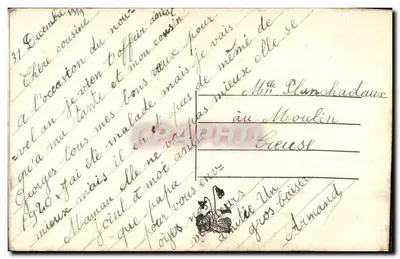 31 Décembre 1919
Chère cousine
A l'occasion du nou-
-vel an je vien t'offrir ainsi
qu'a ma tante et mon cousin
Georges tous mes bons vœux pour
1920 J'ai été malade mais je vais
mieux mais il n'est pas de même de
Maman elle ne va pas mieux elle se
joint à moi
que papa
pour vous env-
oyer
amitié Un
gros baiser
Armand
Mlle Planchadaux
au Moulin
Creuse